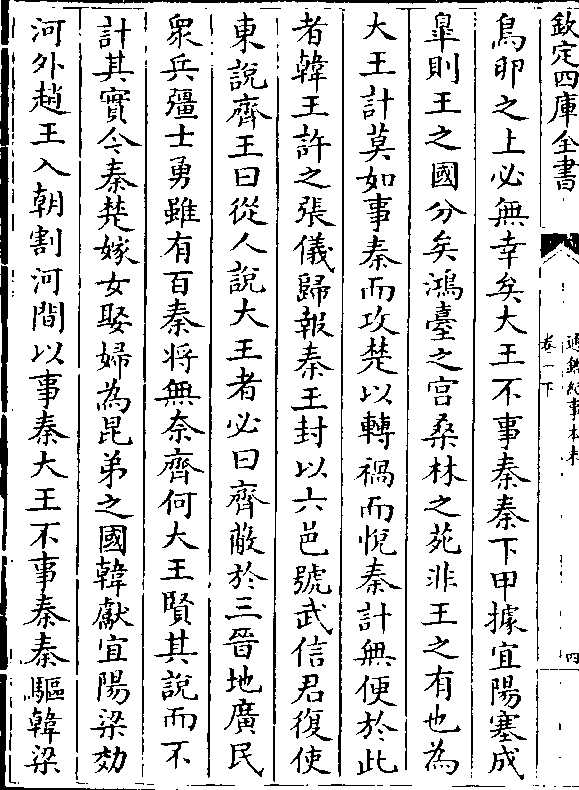 欽定四庫全書
通鑑紀事本末
卷一下
四
鳥卵之上必無幸矣大王不事秦秦下甲據宜陽塞成
臯則王之國分矣鴻臺之宫桑林之苑非王之有也為
大王計莫如事秦而攻楚以轉禍而悅秦計無便於此
者韓王許之張儀歸報秦王封以六邑號武信君復使
東說齊王曰從人說大王者必曰齊蔽於三晉地廣民
衆兵彊士勇雖有百秦将無奈齊何大王賢其說而不
計其實今秦楚嫁女娶婦為昆弟之國韓獻宜陽梁効
河外趙王入朝割河間以事秦大王不事秦秦驅韓梁